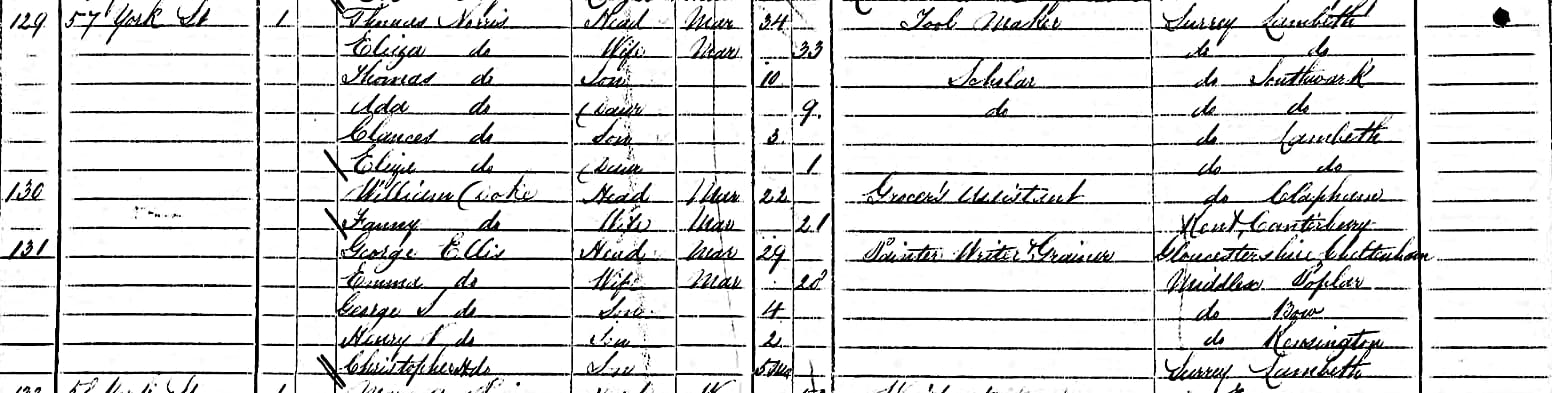 129 57 York St 1 Thomas Norris Head Mar 34 Tool Maker Surrey Lambeth
Eliza do Wife Mar 33 do do
Thomas do Son 10 Scholar do Southwark
Ada do Daur 9 do do do
Clances do Son 3 do Lambeth
Eliza do Daur 1 do do
130 William Cooke Head Mar 22 Grocer's Assistant do Clapham
Fanny do Wife Mar 21 Kent, Canterbury
131 George Ellis Head Mar 29 Painter Writer & Grainer Gloucestershire Cheltenham
Emma do Wife Mar 28 Middlex Poplar
George S do Son 4 do Bow
Henry do Son 2 do Kensington
Christopher H do Son 5 Mo Surrey Lambeth